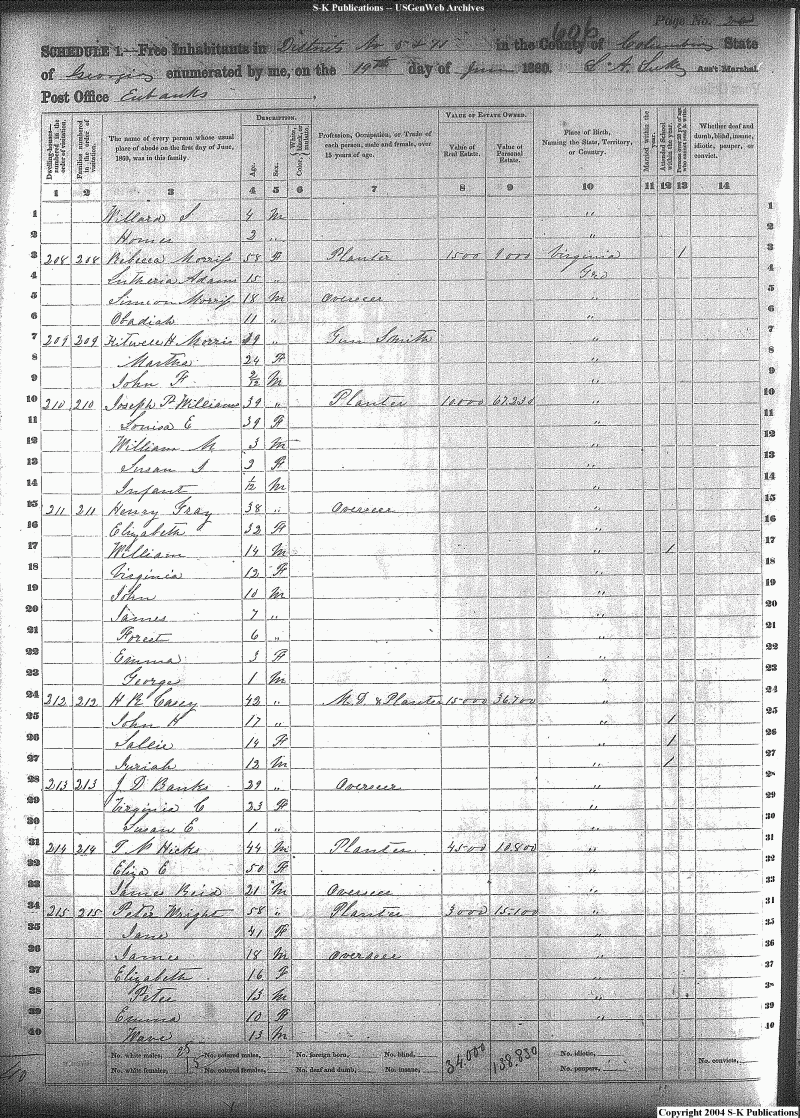 S-K Publications -- USGenWeb Archives
Page No. 26
606
SCHEDULE 1.—Free Inhabitants in Districts No 5 & 71 in the County of Columbia State
of Georgia enumerated by me, on the 19th day of June 1860. S. A. Luke Ass't Marshal.
Post Office Eubanks
Dwelling-houses—numbered in the order of visitation. Families numbered in the order of visitation. The name of every person whose usual place of abode on the first day of June, 1860, was in this family. DESCRIPTION. Age. Sex. Color, {White, black, or mulatto. Profession, Occupation, or Trade of each person, male and female, over 15 years of age. VALUE OF ESTATE OWNED. Value of Real Estate. Value of Personal Estate. Place of Birth, Naming the State, Territory, or Country. Married within the year. Attended School within the year. Persons over 20 y'rs of age who cannot read & write. Whether deaf and dumb, blind, insane, idiotic, pauper, or convict.
1 2 3 4 5 6 7 8 9 10 11 12 13 14
1 Willard S 4 M " 1
2 Homer 2 " " 2
3 208 208 Rebecca Morriss 58 F Planter 1500 9000 Virginia 1 3
4 Lutheria Adams 15 " Geo 4
5 Simeon Morriss 18 M Overseer " 5
6 Obadiah 11 " " 6
7 209 209 Kitwell H. Morris 29 " Gun Smith " 7
8 Martha 24 F " 8
9 John F 2/12 M " 9
10 210 210 Joseph P. Williams 39 " Planter 10000 67,230 " 10
11 Louisa E 39 F " 11
12 William M 3 M " 12
13 Susan J 2 F " 13
14 Infant 1/12 M " 14
15 211 211 Henry Gray 38 " Overseer " 15
16 Elizabeth 32 F " 16
17 William 14 M " 1 17
18 Virginia 12 F " 18
19 John 10 M " 19
20 James 7 " " 20
21 Forest 6 " " 21
22 Emma 3 F " 22
23 George 1 M " 23
24 212 212 H R Casey 42 " M.D. & Planter 15000 36,700 " 24
25 John H 17 " " 1 25
26 Sallie 14 F " 1 26
27 Juriah 12 M " 1 27
28 213 213 J D Banks 29 " Overseer " 28
29 Virginia C 23 F " 29
30 Susan E 1 " " 30
31 214 214 T. N Hicks 44 M Planter 4500 10,800 " 31
32 Eliza E 50 F " 32
33 James Reid 21 M Overseer " 33
34 215 215 Peter Wright 58 " Planter 3000 15,100 " 31
35 Jane 41 F " 35
36 James 18 M Overseer " 36
37 Elizabeth 16 F " 37
38 Peter 13 M " 38
39 Emma 10 F " 39
40 Wave 13 M 40
No. white males, 25 No. colored males, No. foreign born, No. blind, 34,000 138,830 No. idiotic, No. convicts,
No. white females, 15 No. colored females, No. deaf and dumb, No. insane, No. paupers,
Copyright 2004 S-K Publications